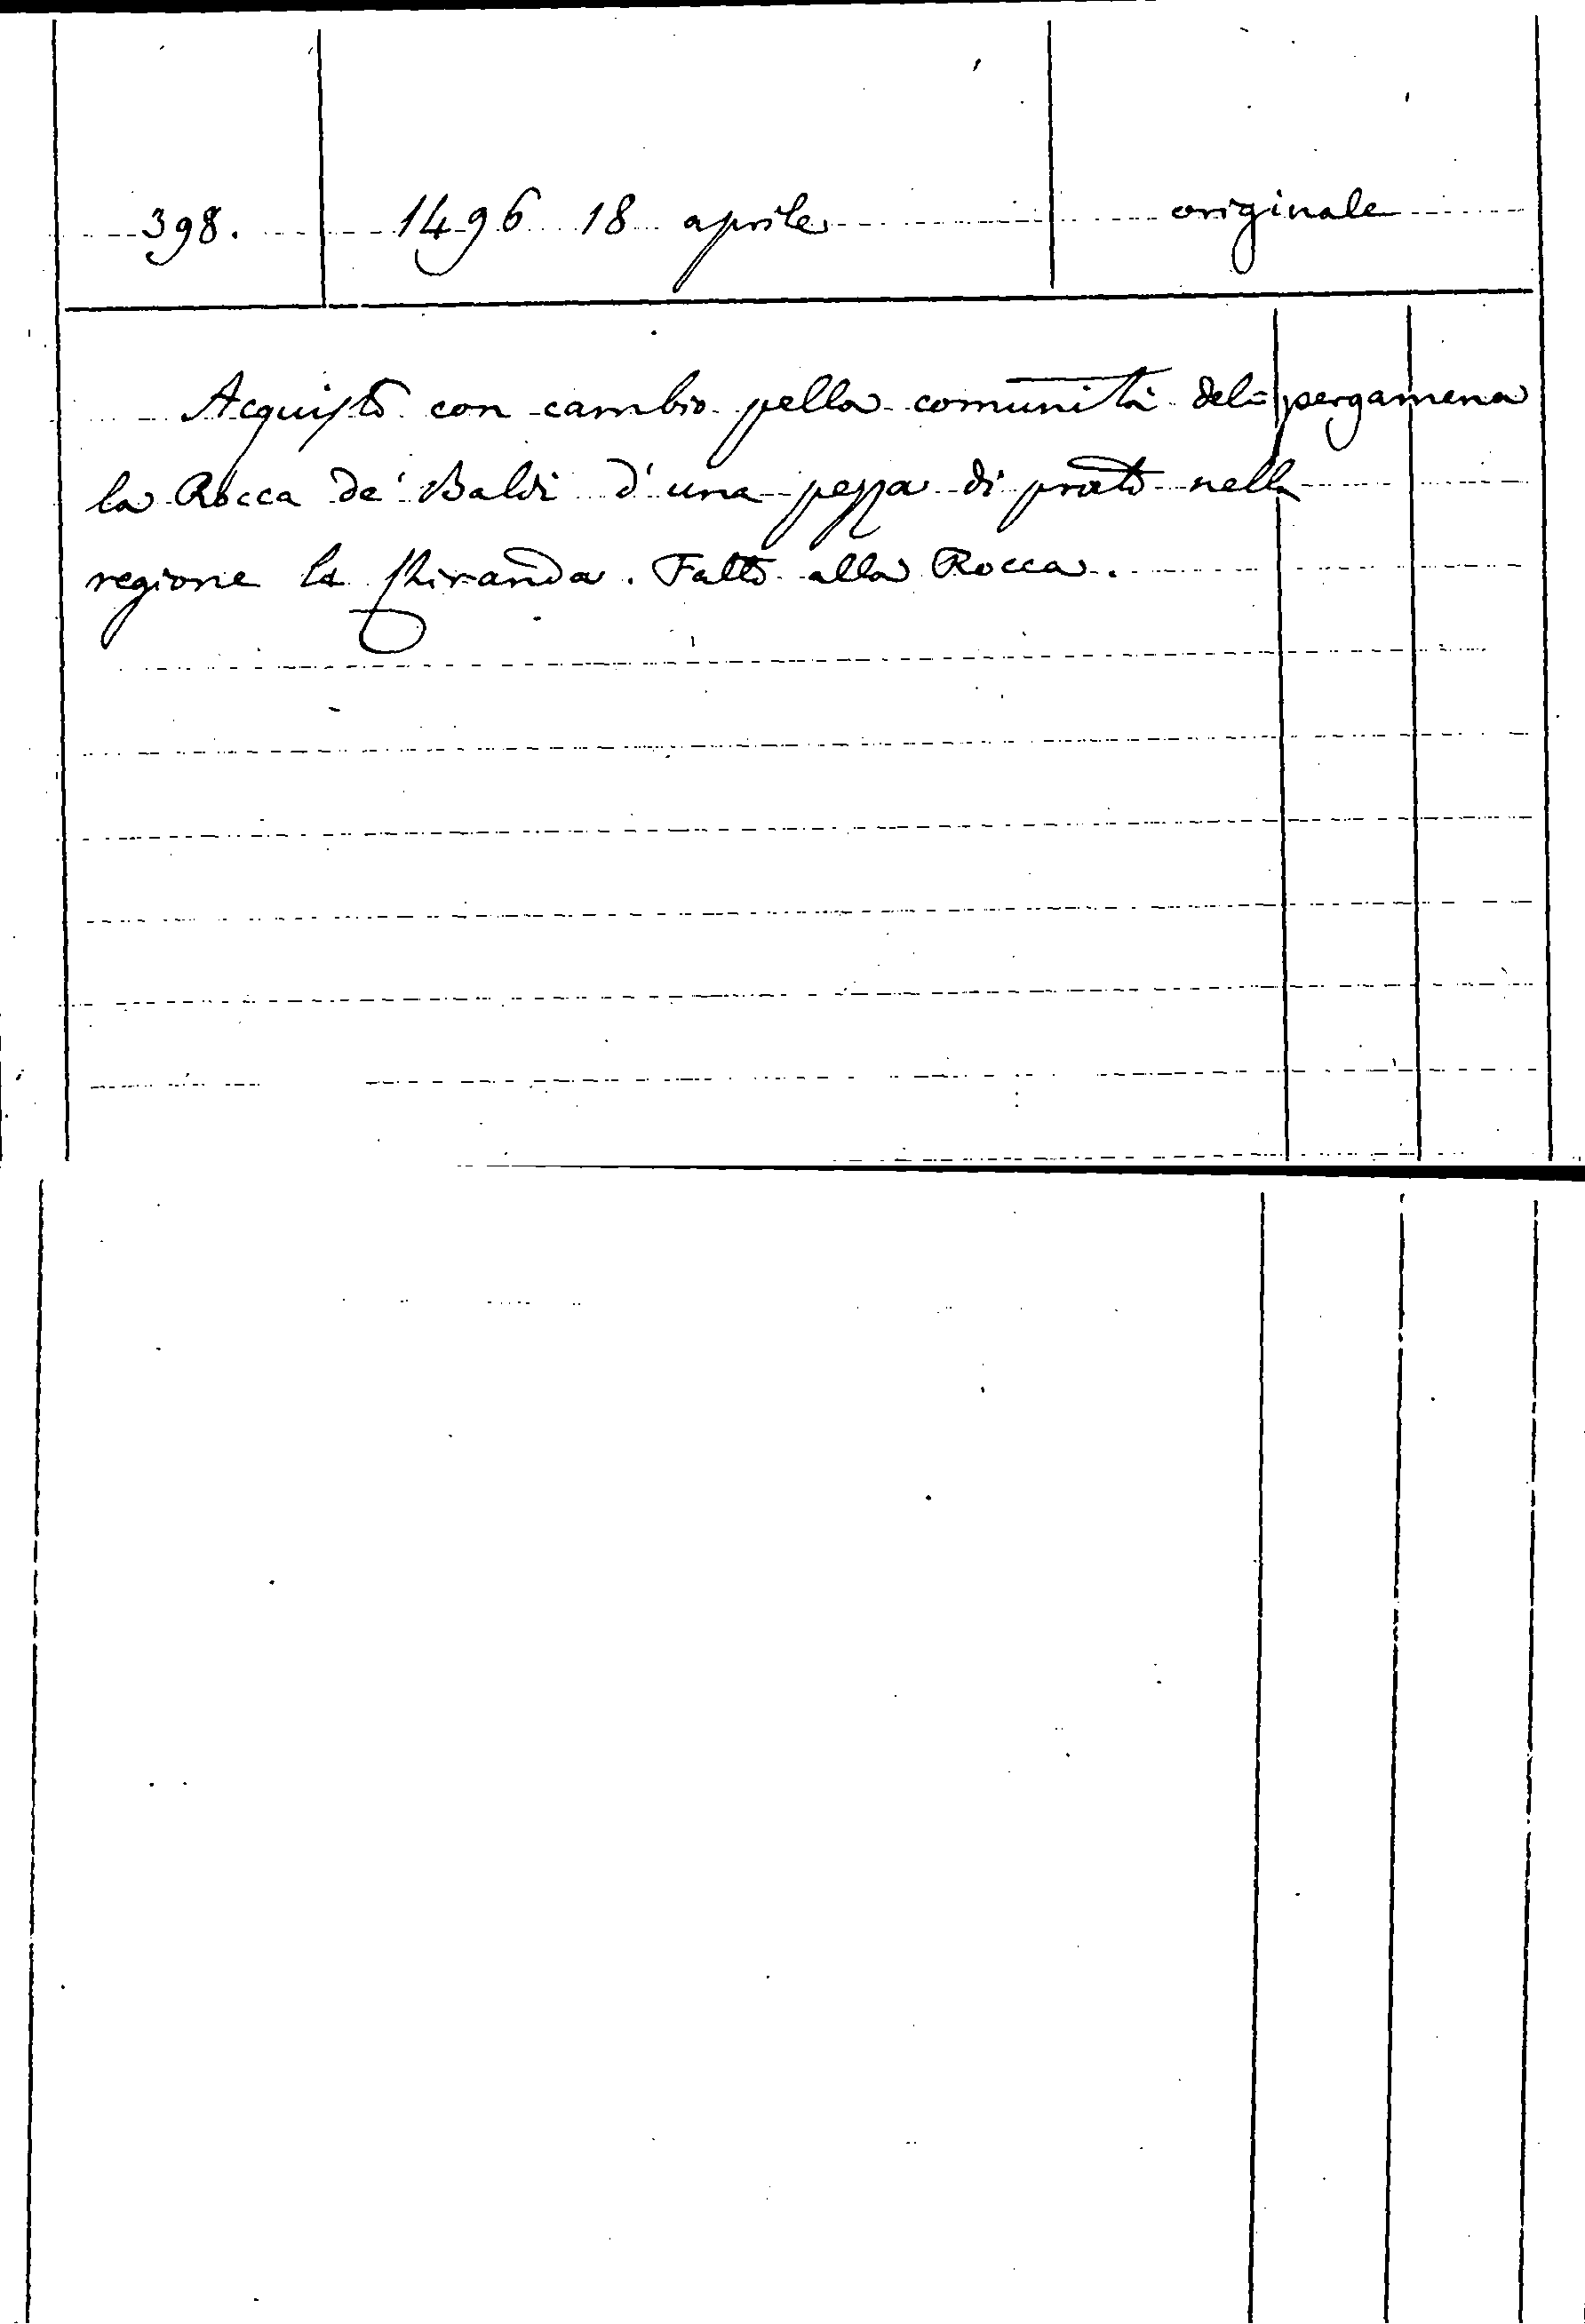 398. 1496 18 aprile originale
Acquisto con cambio pella comunità del= pergamena
la Rocca de' Baldi d'una pezza di prato nella
regione la . Fatto alla Rocca.